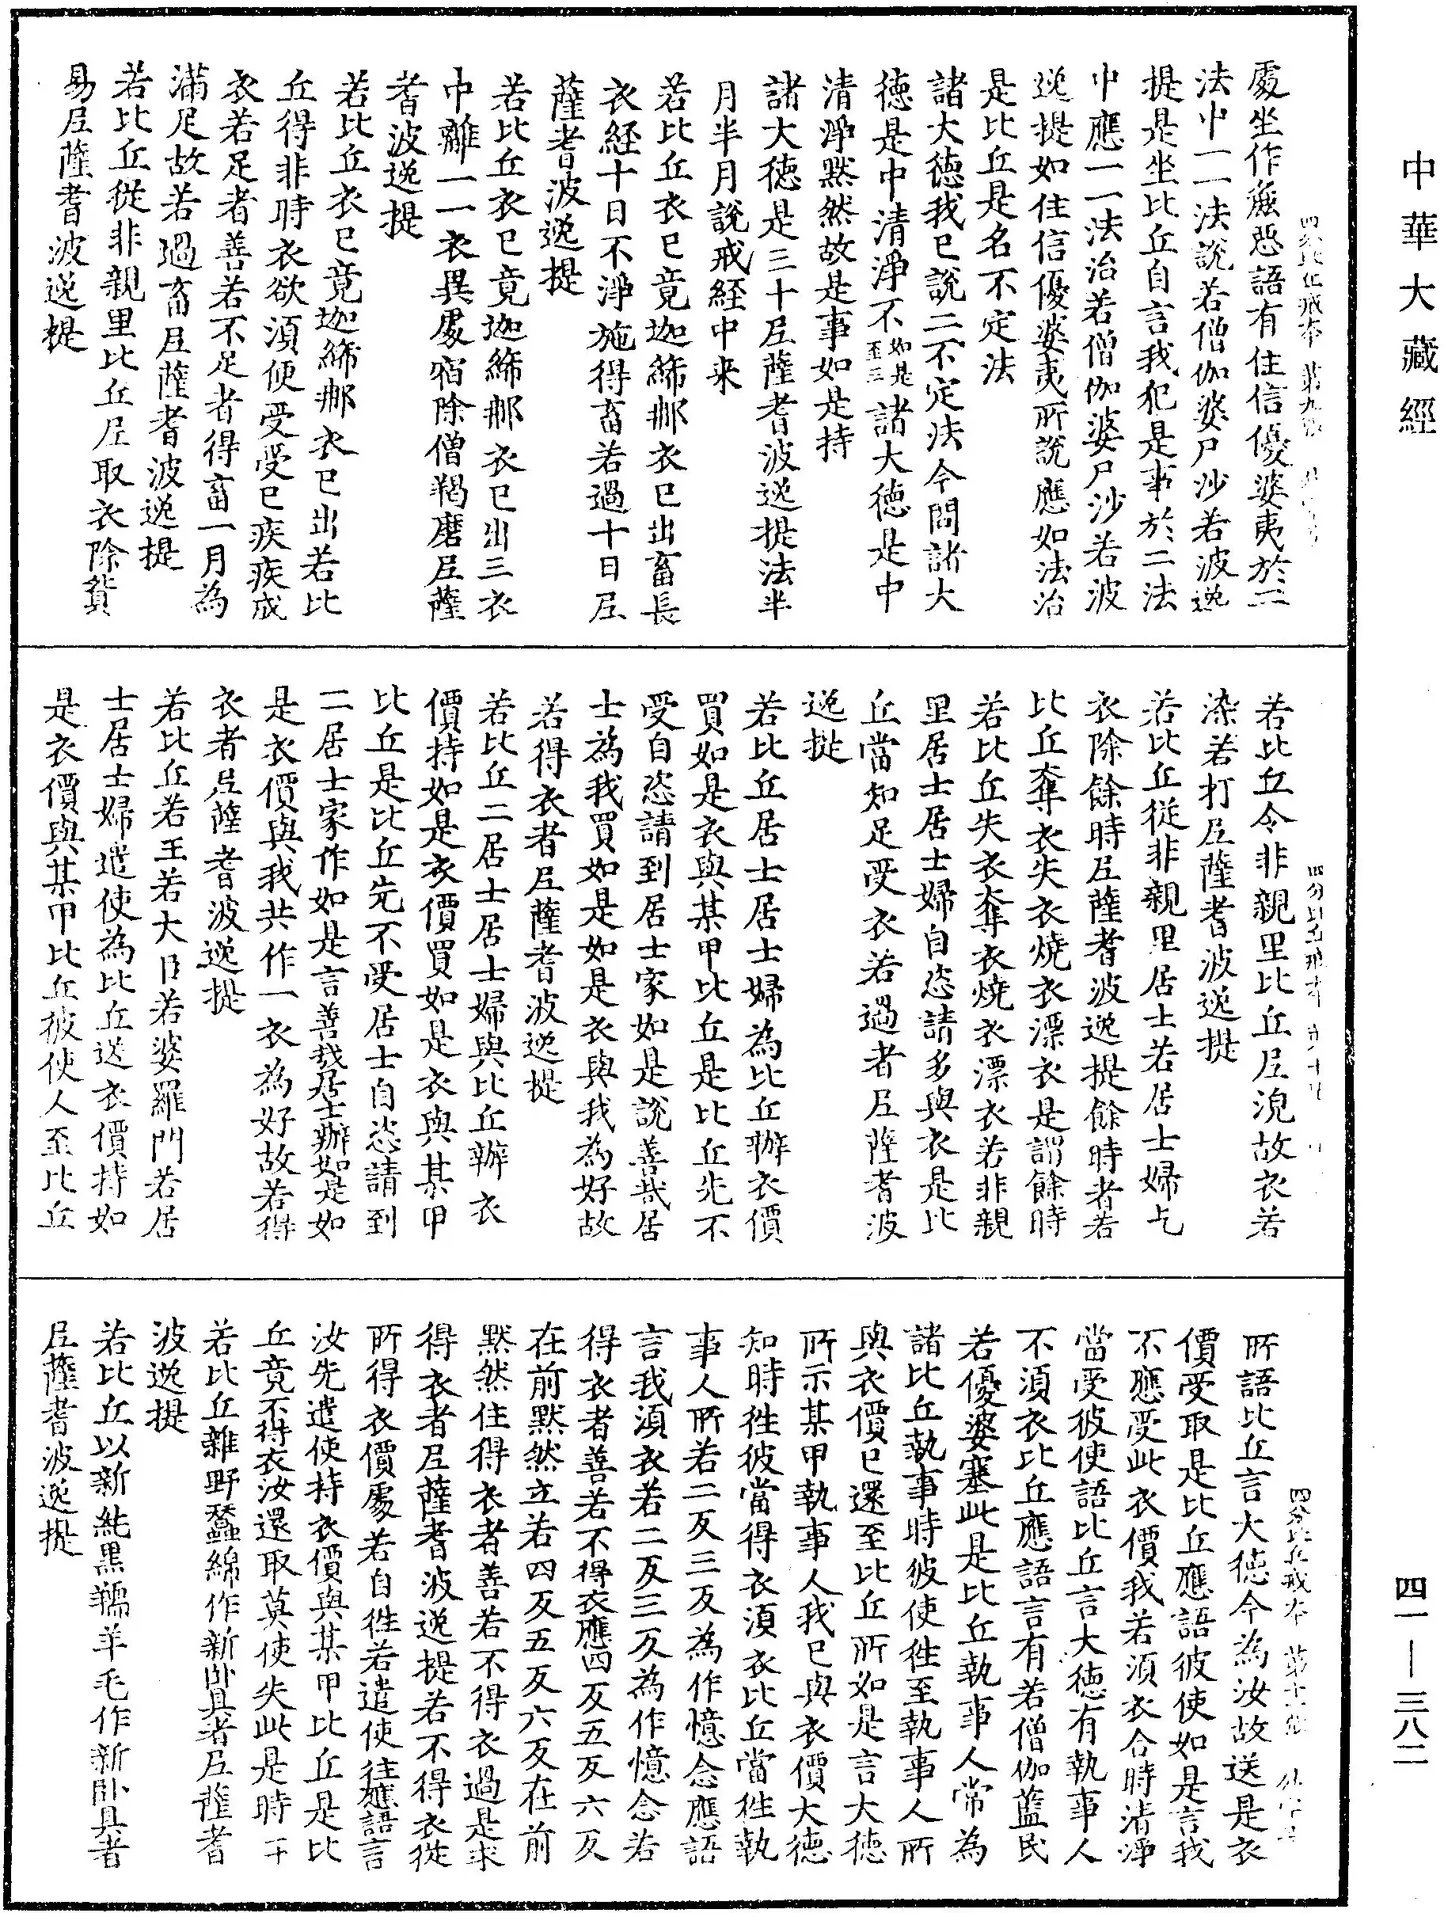 中華大藏經
處坐作麁惡語有住信優婆夷於二
法中一一法說若僧伽婆尸沙若波逸
提是坐比丘自言我犯是事於二法
中應一一法治若僧伽婆尸沙若波
逸提如住信優婆夷所說應如法治
是比丘是名不定法
諸大德我已說二不定法今問諸大
德是中清淨不如是至三諸大德是中
清淨默然故是事如是持
諸大德是三十尼薩耆波逸提法半
月半月說戒經中來
若比丘衣已竟迦絺那衣已出畜長
衣經十日不淨施得畜若過十日尼
薩耆波逸提
若比丘衣已竟迦絺那衣已出三衣
中離一一衣異處宿除僧羯磨尼薩
耆波逸提
若比丘衣已竟迦絺那衣已出若比
丘得非時衣欲須便受受已疾疾成
衣若足者善若不足者得畜一月為
滿足故若過畜尼薩耆波逸提
若比丘從非親里比丘尼取衣除貿
易尼薩耆波逸提
若比丘令非親里比丘尼浣故衣若
染若打尼薩耆波逸提
若比丘從非親里居士若居士婦乞
衣除餘時尼薩耆波逸提餘時者若
比丘奪衣失衣燒衣漂衣是謂餘時
若比丘失衣奪衣燒衣漂衣若非親
里居士居士婦自恣請多與衣是比
丘當知足受衣若過者尼薩耆波
逸提
若比丘居士居士婦為比丘辦衣價
買如是衣與某甲比丘是比丘先不
受自恣請到居士家如是說善哉居
士為我買如是如是衣與我為好故
若得衣者尼薩耆波逸提
若比丘二居士居士婦與比丘辦衣
價持如是衣價買如是衣與某甲
比丘是比丘先不受居士自恣請到
二居士家作如是言善哉居士辦如是如
是衣價與我共作一衣為好故若得
衣者尼薩耆波逸提
若比丘若王若大臣若婆羅門若居
士居士婦遣使為比丘送衣價持如
是衣價與某甲比丘彼使人至比丘
所語比丘言大德今為汝故送是衣
價受取是比丘應語彼使如是言我
不應受此衣價我若須衣合時清淨
當受彼使語比丘言大德有執事人
不須衣比丘應語言有若僧伽藍民
若優婆塞此是比丘執事人常為
諸比丘執事時彼使往至執事人所
與衣價已還至比丘所如是言大德
所示某甲執事人我已與衣價大德
知時往彼當得衣須衣比丘當往執
事人所若二反三反為作憶念應語
言我須衣若二反三反為作憶念若
得衣者善若不得衣應四反五反六反
在前默然立若四反五反六反在前
默然住得衣者善若不得衣過是求
得衣者尼薩耆波逸提若不得衣從
所得衣價處若自往若遣使往應語言
汝先遣使持衣價與某甲比丘是比
丘竟不得衣汝還取莫使失此是時
若比丘雜野蠶綿作新臥具者尼薩耆
波逸提
若比丘以新純黑羺羊毛作新臥具者
尼薩耆波逸提
四一—三八二